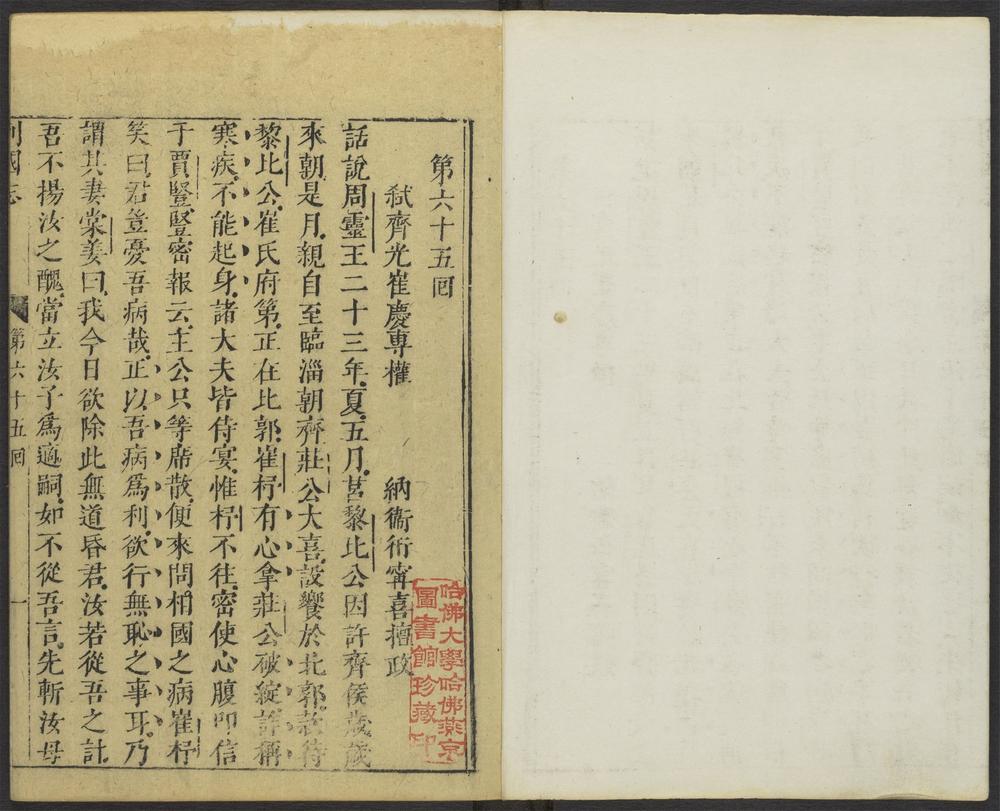 第六十五囘
弑齊光崔慶專權　納衞衎甯喜擅政
話說周靈王二十三年夏五月莒黎比公因許齊侯歲歲
來朝是月親自至臨淄朝齊莊公大喜設饗於北郭款待
黎比公崔氏府第正在北郭崔杼有心拿莊公破綻詐稱
寒疾不能起身諸大夫皆侍宴惟杼不往密使心腹叩信
于賈豎豎密報云主公只等席散便來問相國之病崔杼
笑曰君豈憂吾病哉正以吾病爲利欲行無恥之事耳乃
謂其妻棠姜曰我今日欲除此無道昏君汝若從吾之計
吾不揚汝之醜當立汝子爲適嗣如不從吾言先斬汝母
列國志　第六十五囘　一
哈佛大學哈佛燕京
圖書館珍藏印